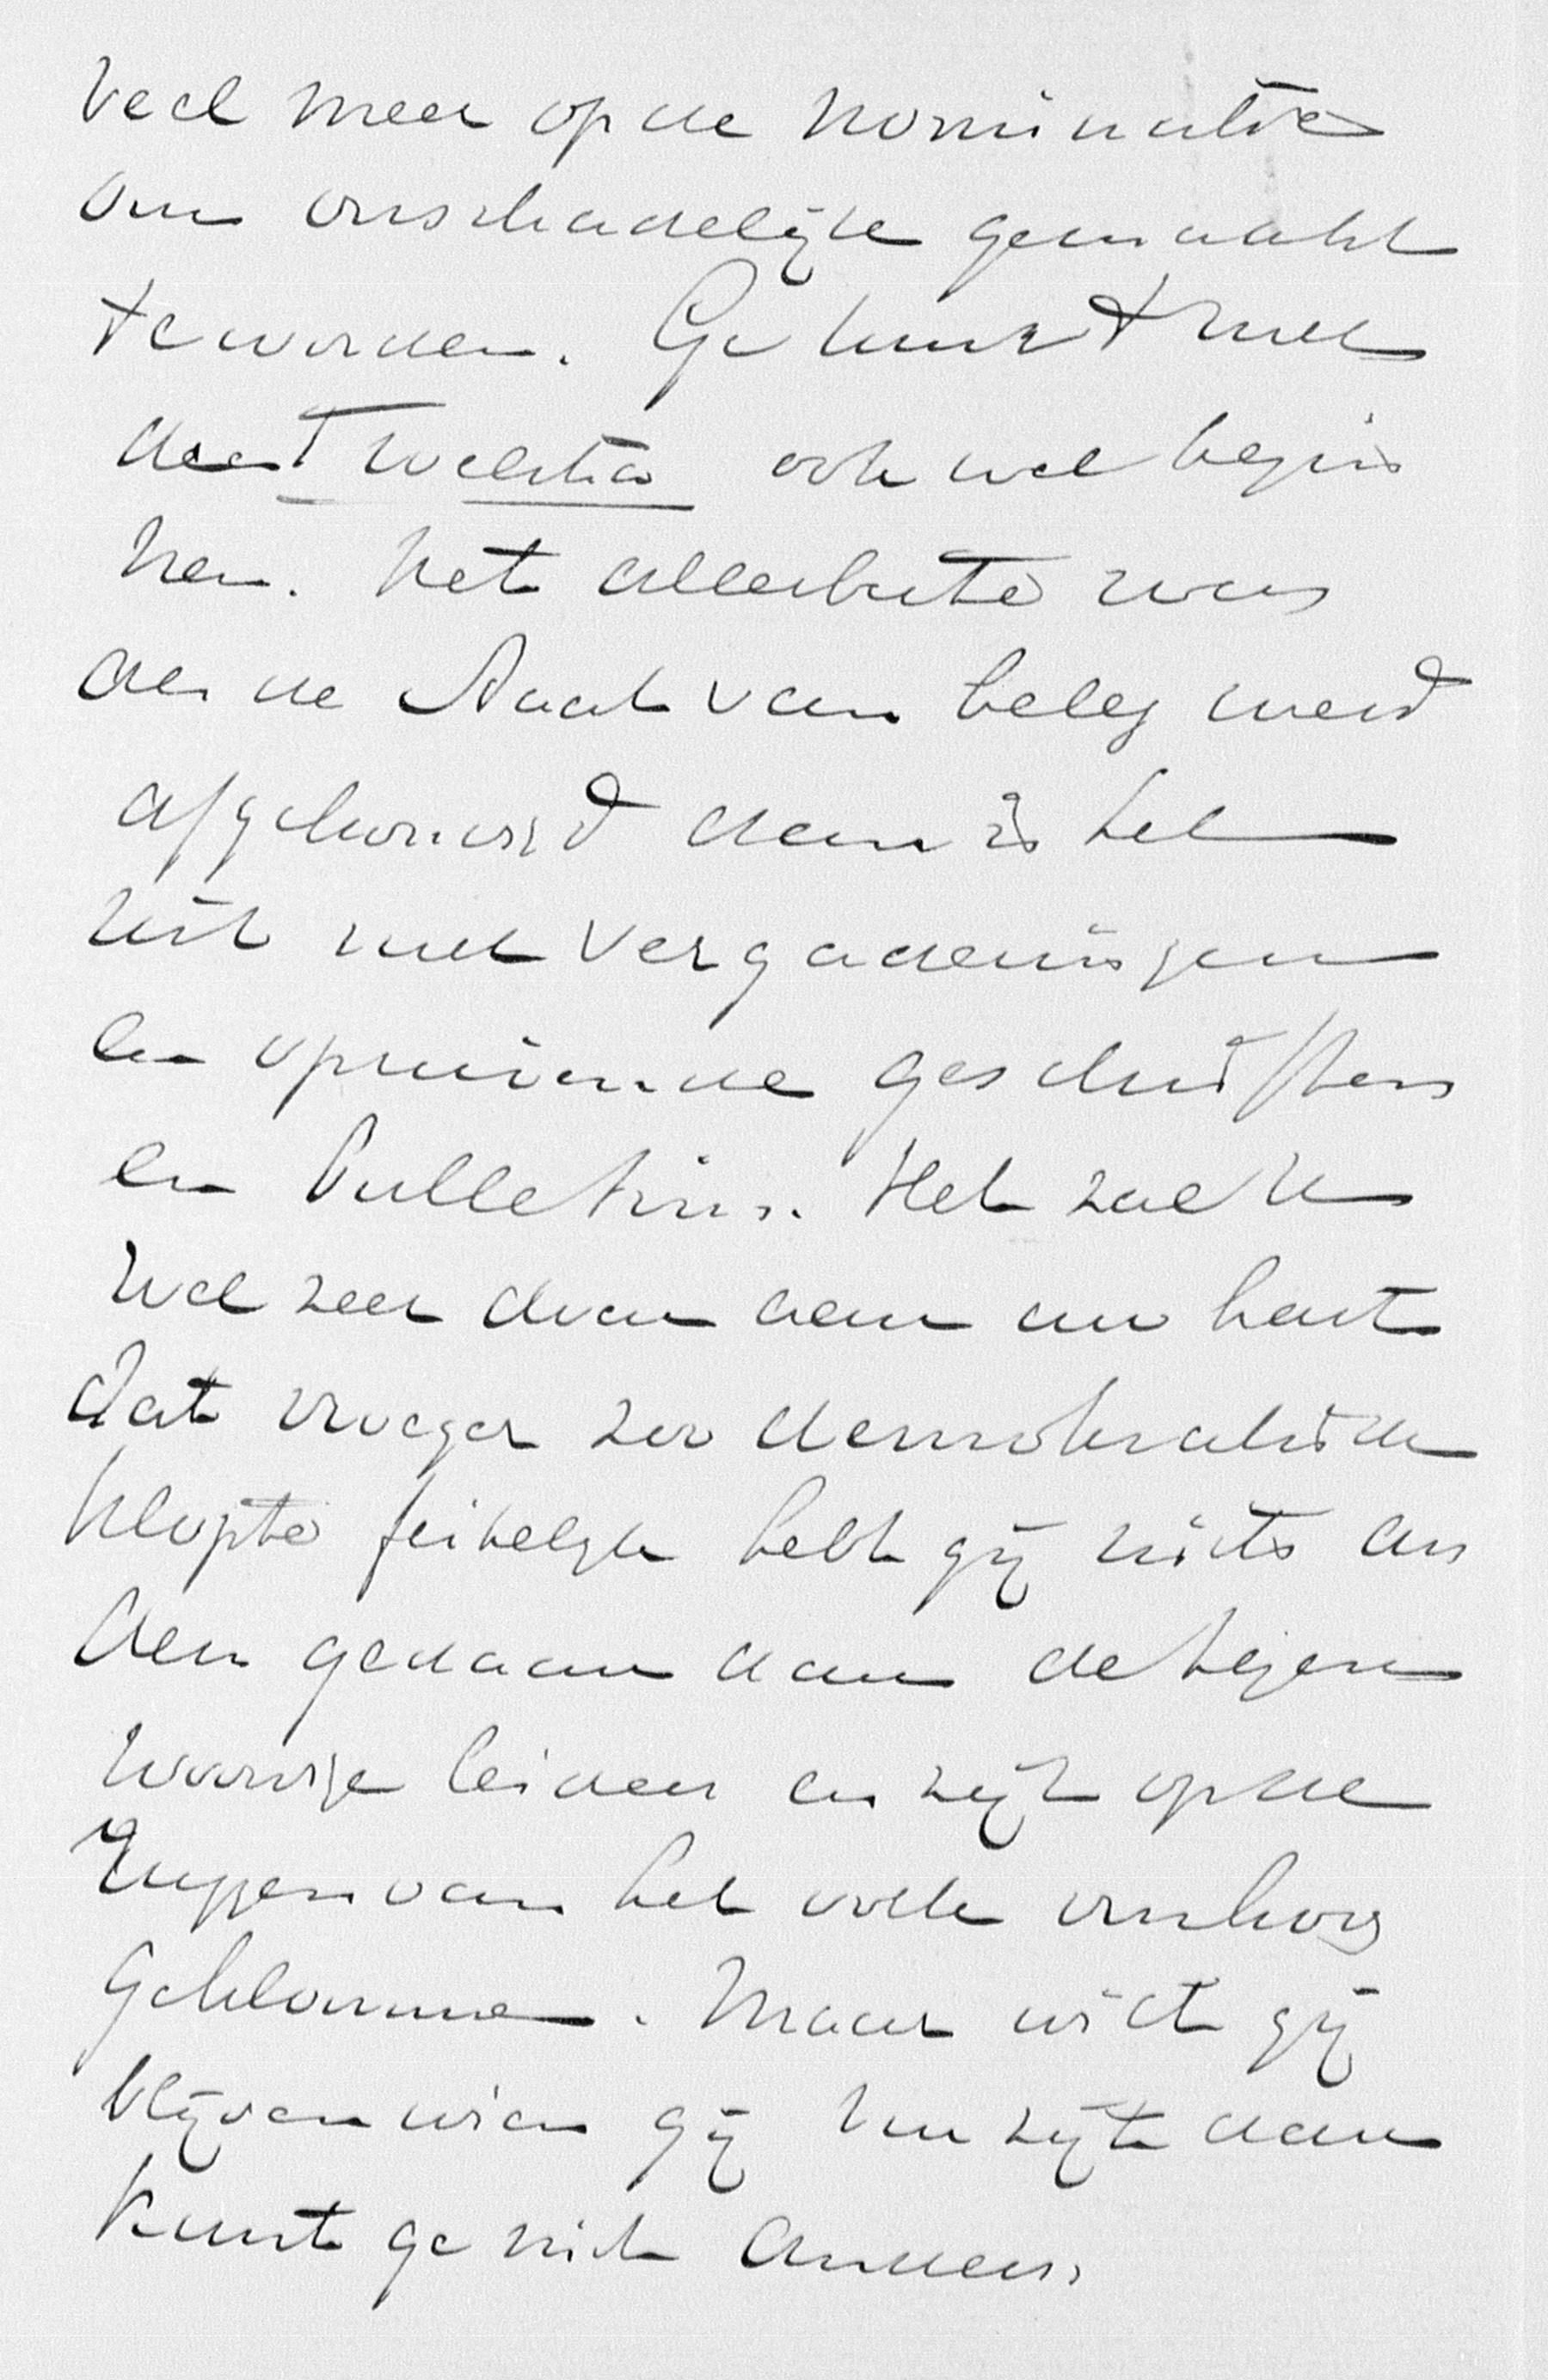 veel meer op de nominatie
om onschadelijk gemaakt
te worden. Ge kunt met
deen Troelstra ook wel begin
nen. Het allerbeste was
als de Staat van beleg werd
afgekondigd dan is het
uit met vergaderingen
en opruiende geschriften
en Bulletins. Het zal U
wel zeer doen aan uw hart
dat vroeger zoo demokratisch
klopte feitelijk hebt gij niets an
ders gedaan dan de tegen
woordige leiders en zijt op de
ruggen van het volk omhoog
geklommen. Maar wilt gij
blijven wien gij nu zijt dan
kunt ge niet anders.